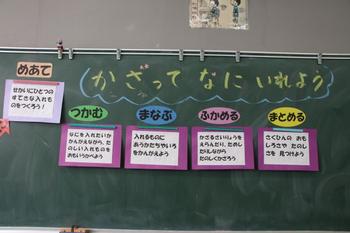 かざって なに いれよう
めあて
せかいにひとつの
すてきな入れも
のをつくろう!
つかむ
なにを入れたいか
かんがえながら、た
のしい入れものを
おもいうかべよう
まなぶ
入れるものに
あうかたちやいろ
をかんがえよう
ふかめる
かざるざいりょうを
えらんだり、ためし
たりしながら
たのしくかざろう
まとめる
さくひんの おも
しろさや たのし
さを 見つけよう